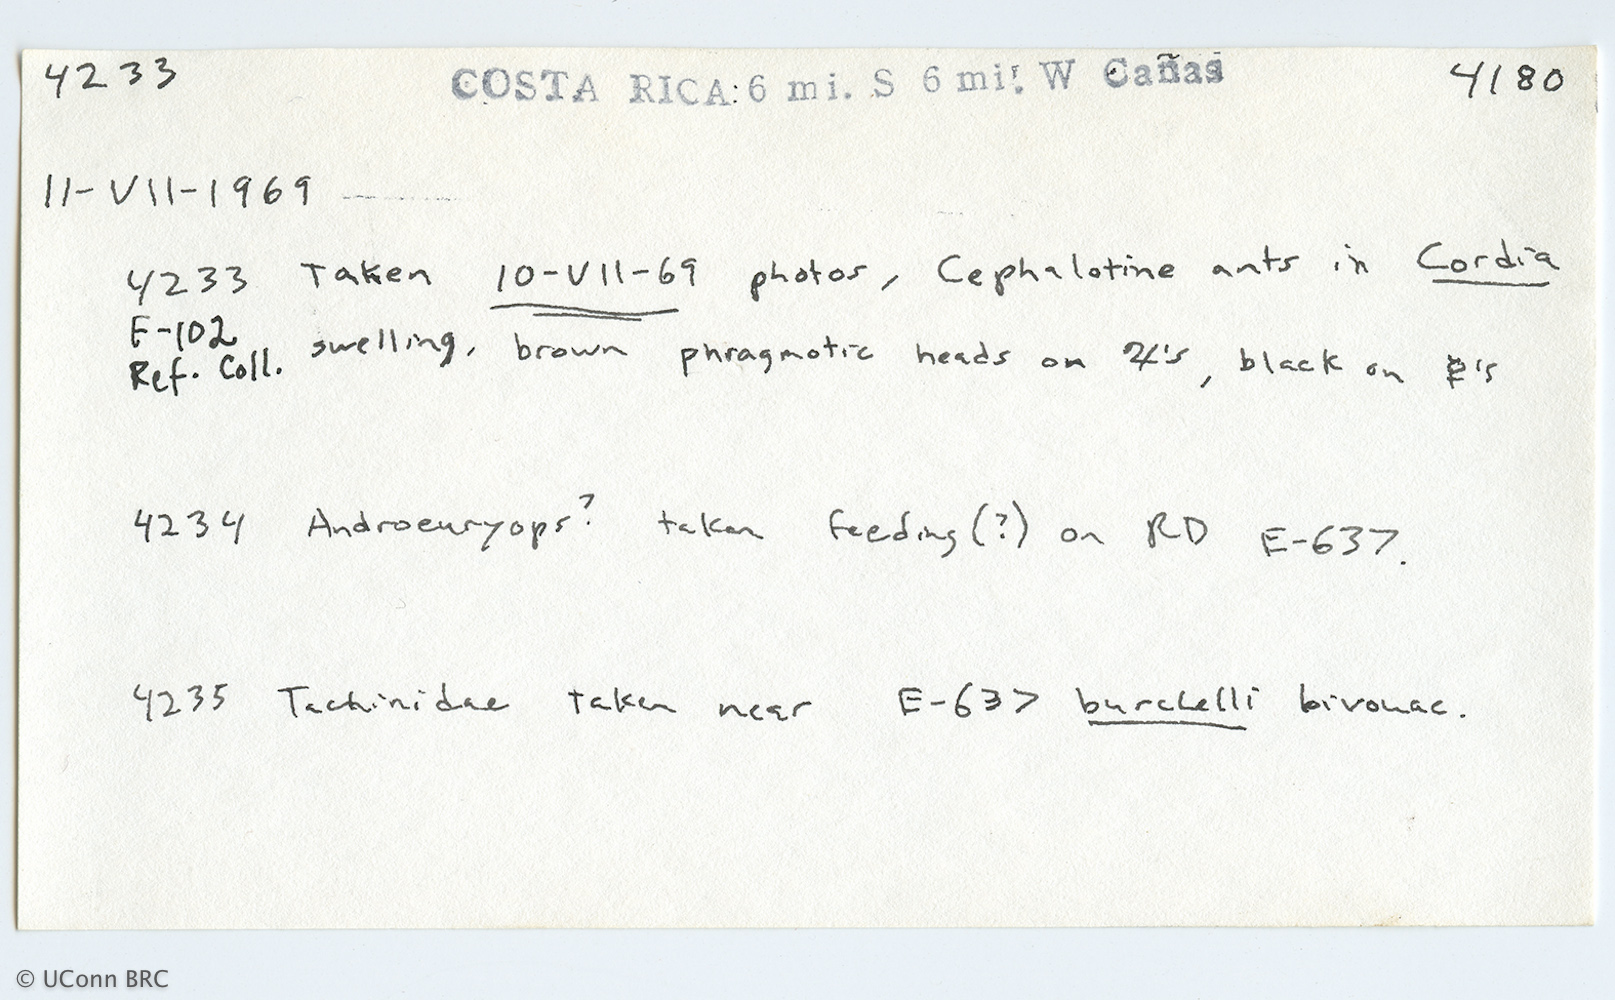 4233 COSTA RICA: 6 mi. S 6 mi. W Cañas 4180
11-VII-1969
4233 Taken 10-VII-69 photos, Cephalotine ants in Cordia
E-102 swelling, brown phragmotic heads on ♃'s, black on 's
Ref. Coll.
4234 Androeuryops? taken feeding (?) on RD E-637.
4235 Tachinidae taken near E-637 burchelli bivouac.
© UConn BRC